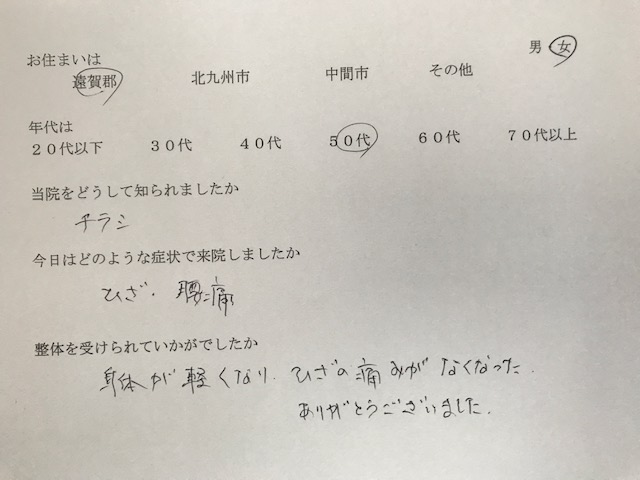 男・女
お住まいは
遠賀郡 北九州市 中間市 その他
年代は
２０代以下 ３０代 ４０代 ５０代 ６０代 ７０代以上
当院をどうして知られましたか
チラシ
今日はどのような症状で来院しましたか
ひざ、腰痛
整体を受けられていかがでしたか
身体が軽くなり、ひざの痛みがなくなった。
ありがとうございました。